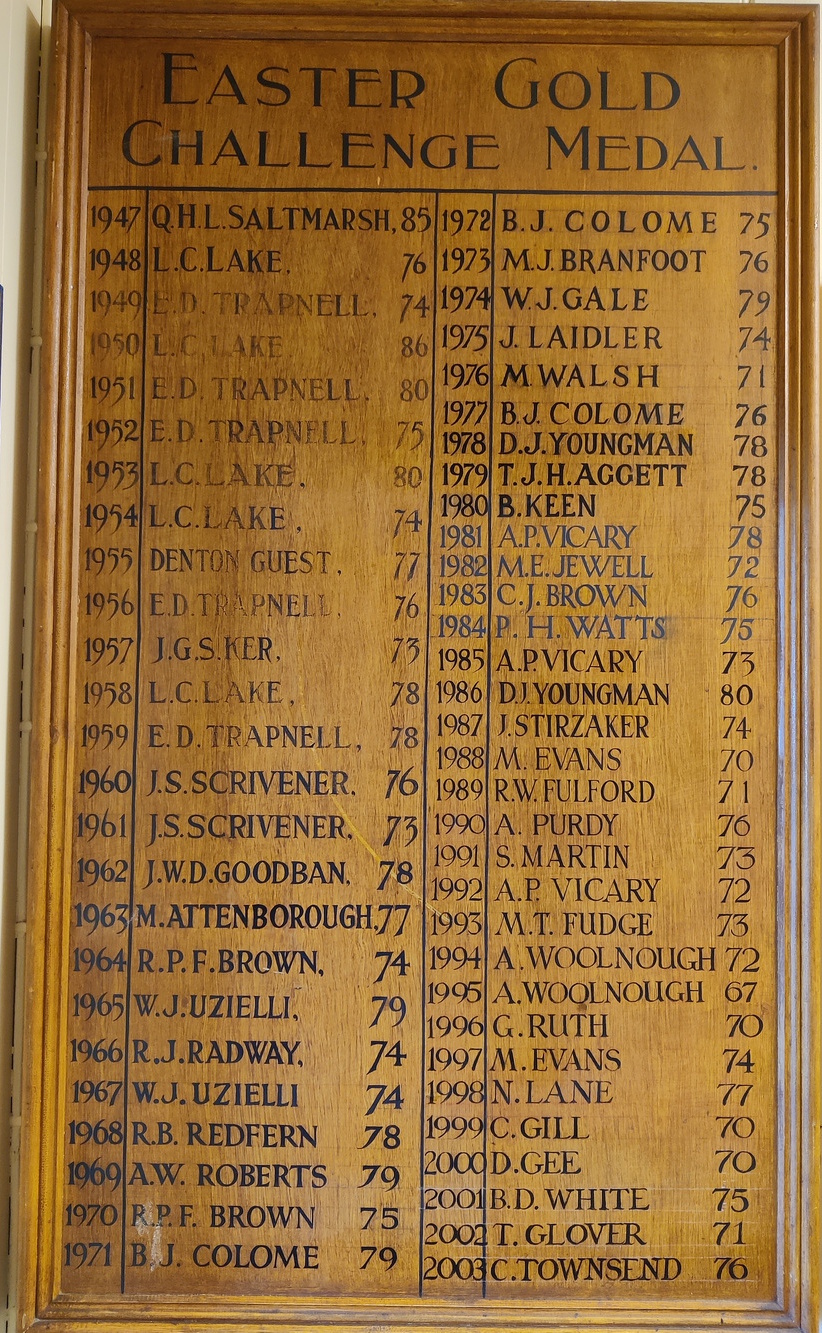 EASTER GOLD
CHALLENGE MEDAL.
1947 Q.H.L.SALTMARSH, 85
1948 L.C.LAKE, 76
1949 E.D. TRAPNELL, 74
1950 L.C. LAKE 86
1951 E.D. TRAPNELL, 80
1952 E.D. TRAPNELL, 75
1953 L.C. LAKE, 80
1954 L.C. LAKE, 74
1955 DENTON GUEST, 77
1956 E.D. TRAPNELL, 76
1957 J.G.S.KER, 73
1958 L.C. LAKE, 78
1959 E.D. TRAPNELL, 78
1960 J.S.SCRIVENER, 76
1961 J.S.SCRIVENER, 73
1962 J.W.D.GOODBAN, 78
1963 M.ATTENBOROUGH, 77
1964 R.P.F.BROWN, 74
1965 W.J.UZIELLI, 79
1966 R.J.RADWAY, 74
1967 W.J. UZIELLI 74
1968 R.B. REDFERN 78
1969 A.W. ROBERTS 79
1970 R.P.F. BROWN 75
1971 B.J. COLOME 79
1972 B.J. COLOME 75
1973 M.J.BRANFOOT 76
1974 W.J.GALE 79
1975 J. LAIDLER 74
1976 M.WALSH 71
1977 B.J. COLOME 76
1978 D.J.YOUNGMAN 78
1979 T.J.H.AGGETT 78
1980 B.KEEN 75
1981 A.P.VICARY 78
1982 M.E.JEWELL 72
1983 C.J.BROWN 76
1984 P. H. WATTS 75
1985 A.P.VICARY 73
1986 D.J.YOUNGMAN 80
1987 J.STIRZAKER 74
1988 M. EVANS 70
1989 R.W.FULFORD 71
1990 A. PURDY 76
1991 S.MARTIN 73
1992 A.P. VICARY 72
1993 M.T. FUDGE 73
1994 A.WOOLNOUGH 72
1995 A.WOOLNOUGH 67
1996 G.RUTH 70
1997 M.EVANS 74
1998 N.LANE 77
1999 C.GILL 70
2000 D.GEE 70
2001 B.D. WHITE 75
2002 T. GLOVER 71
2003 C.TOWNSEND 76